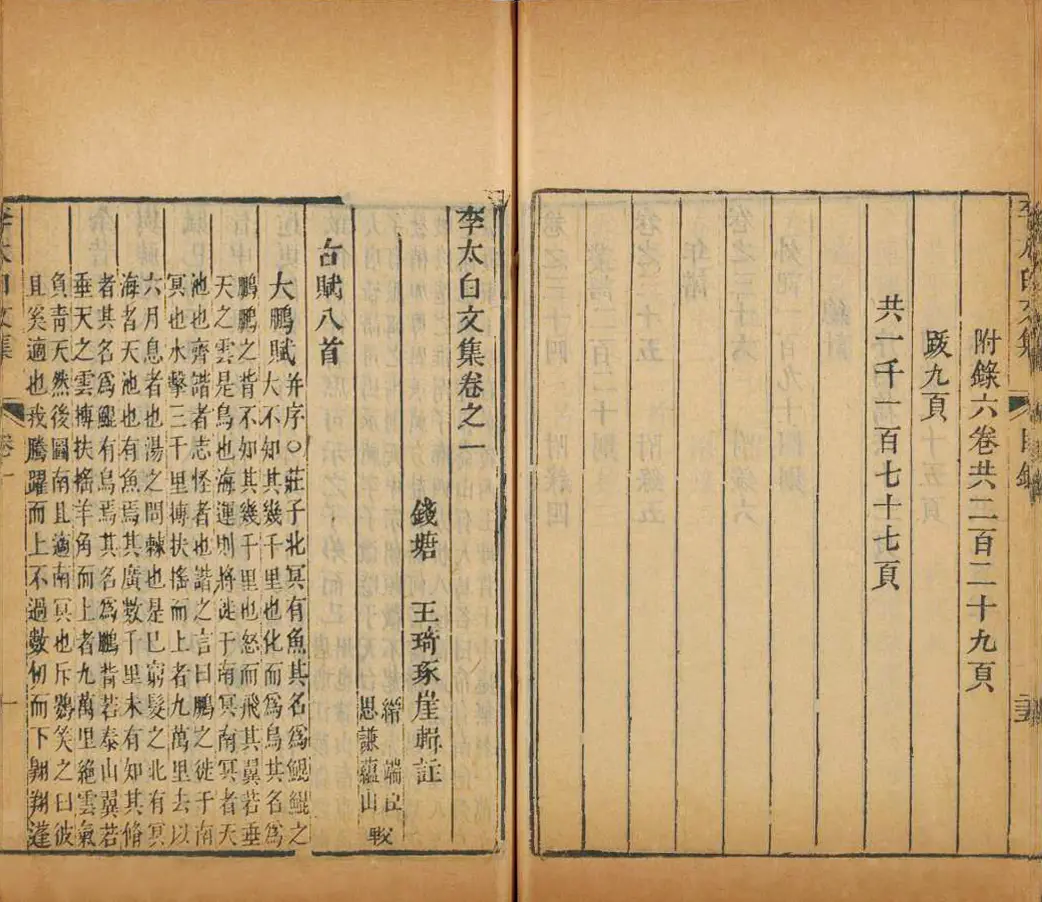 李太白文集 目錄
附錄六卷共二百二十九頁
跋九頁
共一千一百七十七頁
李太白文集卷之一
錢塘 王琦琢崖輯註
縉端臣
思謙蘊山 較
古賦八首
大鵬賦 并序〇莊子北冥有魚其名爲鯤鯤之
大不知其幾千里也化而爲鳥其名爲
鵬鵬之背不知其幾千里也怒而飛其翼若垂
天之雲是鳥也海運則將徙于南冥南冥者天
池也齊諧者志怪者也諧之言曰鵬之徙于南
冥也水擊三千里摶扶搖而上者九萬里去以
六月息者也湯之問棘也是已窮髮之北有冥
海者天池也有魚焉其廣數千里未有知其脩
者其名爲鯤有鳥焉其名爲鵬背若泰山翼若
垂天之雲摶扶搖羊角而上者九萬里絕雲氣
負青天然後圖南且適南冥也斥鷃笑之曰彼
且奚適也我騰躍而上不過數仞而下翱翔蓬
李太白文集 卷一 一